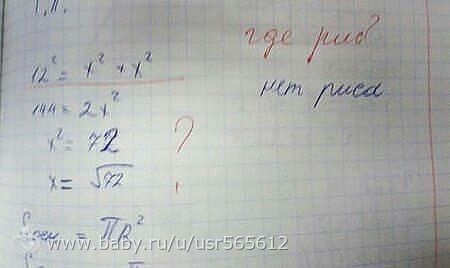 12² = x² + x²
144 = 2x²
x² = 72
x = √72
?
где рис?
нет риса
= πR²
www.baby.ru/u/usr565612